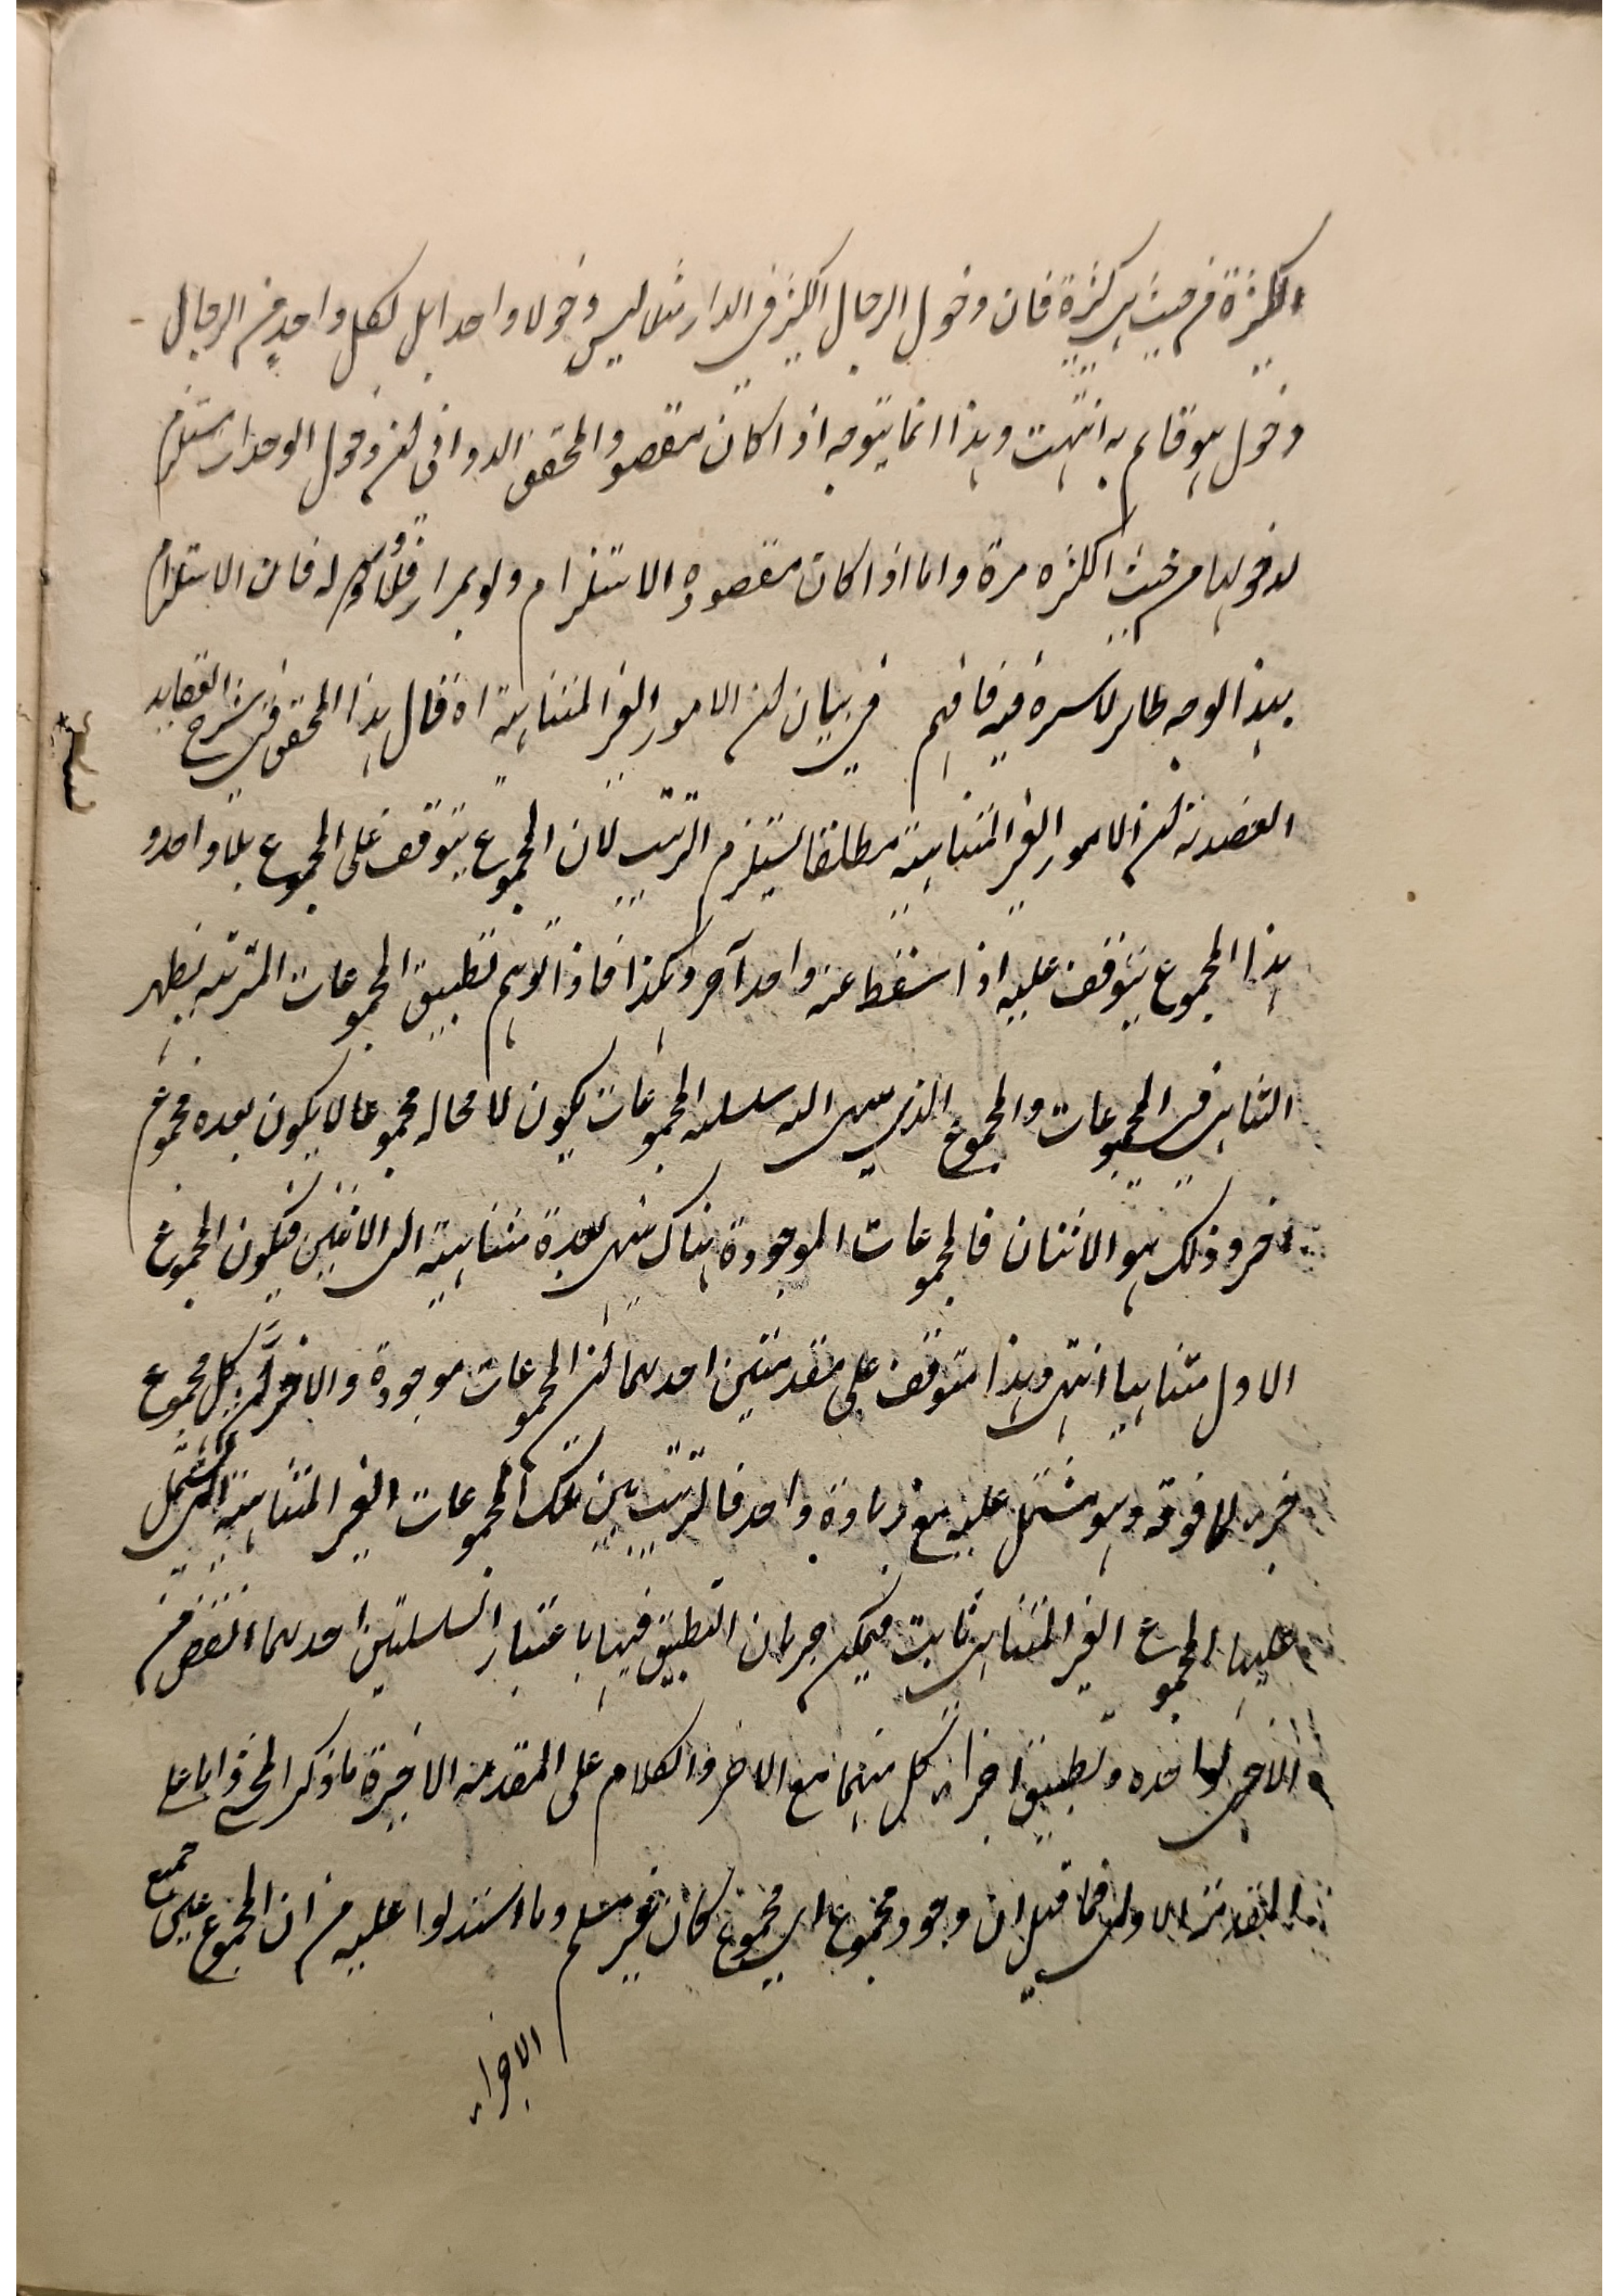 الكثرة من حيث هى كثرة فان دخول الرجال الكثير فى الدار مثلا ليس دخولا واحدا بل لكل واحد من الرجال
دخول هو قائم به انتهت وهذا انما يتوجه اذا كان مقصود المحقق الدوانى ان دخول الوحدات يستلزم
لدخولها من حيث الكثرة مرة واما اذا كان مقصوده الاستلزام ولو بمرار فلا ورود له فان الاستلزام
بهذا الوجه ظاهر لا سترة فيه فافهم فى بيان ان الامور الغير المتناهية اه قال هذا المحقق فى شرح العقايد
العضدية ان الامور الغير المتناهية مطلقا يستلزم الترتيب لان المجموع يتوقف على المجموع بلا واحد و
هذا المجموع يتوقف عليه اذا اسقط عنه واحد آخر وهكذا فاذا توهم تطبيق المجموعات المترتبه يظهر
التناهى فى المجموعات والمجموع الذى ينتهى اليه سلسله المجموعات يكون لا محاله مجموعا لا يكون بعده مجموع
آخر وذلك هو الاثنان فالمجموعات الموجودة هناك ينتهى بعدة متناهية الى الاثنين فيكون المجموع
الاول متناهيا انتهى وهذا متوقف على مقدمتين احدهما ان المجموعات موجودة والاخر ان كل مجموع
جزء لما فوقه وهو مشتمل عليه مع زيادة واحد فالترتيب بين تلك المجموعات الغير المتناهية التى يشتمل
عليها المجموع الغير المتناهى ثابت فيمكن جريان التطبيق فيها باعتبار السلسلتين احدهما انقص من
الاخرى بواحده وتطبيق اجزاء كل منهما مع الاخر والكلام على المقدمه الاخيرة ما ذكر المحشى واما على
المقدمة الاولى فما قيل ان وجود مجموع اى مجموع كان غير مسلم وما استدلوا عليه من ان المجموع عين جميع
الاجزاء